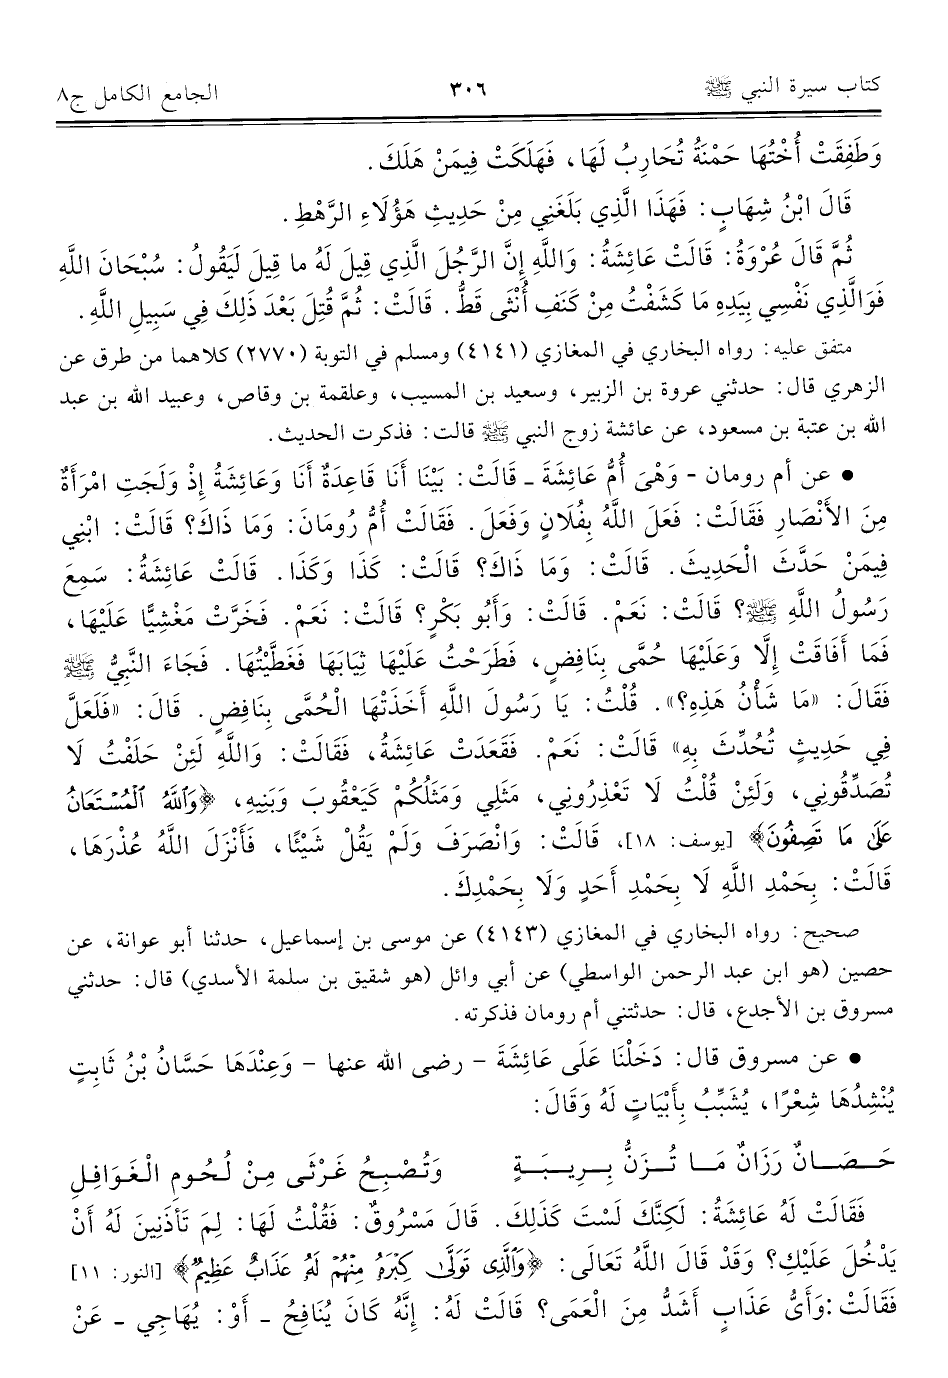 كتاب سيرة النبي ﷺ ٣٠٦ الجامع الكامل ج٨
وَطَفِقَتْ أُخْتُهَا حَمْنَةُ تُحَارِبُ لَهَا، فَهَلَكَتْ فِيمَنْ هَلَكَ.
قَالَ ابْنُ شِهَابٍ: فَهَذَا الَّذِي بَلَغَنِي مِنْ حَدِيثِ هَؤُلَاءِ الرَّهْطِ.
ثُمَّ قَالَ عُرْوَةُ: قَالَتْ عَائِشَةُ: وَاللَّهِ إِنَّ الرَّجُلَ الَّذِي قِيلَ لَهُ ما قِيلَ لَيَقُولُ: سُبْحَانَ اللَّهِ
فَوَالَّذِي نَفْسِي بِيَدِهِ مَا كَشَفْتُ مِنْ كَنَفِ أُنْثَى قَطُّ. قَالَتْ: ثُمَّ قُتِلَ بَعْدَ ذَلِكَ فِي سَبِيلِ اللَّهِ.
متفق عليه: رواه البخاري في المغازي (٤١٤١) ومسلم في التوبة (٢٧٧٠) كلاهما من طرق عن
الزهري قال: حدثني عروة بن الزبير، وسعيد بن المسيب، وعلقمة بن وقاص، وعبيد الله بن عبد
الله بن عتبة بن مسعود، عن عائشة زوج النبي ﷺ قالت: فذكرت الحديث.
• عن أم رومان - وَهْىَ أُمُّ عَائِشَةَ ـ قَالَتْ: بَيْنَا أَنَا قَاعِدَةٌ أَنَا وَعَائِشَةُ إِذْ وَلَجَتِ امْرَأَةٌ
مِنَ الأَنْصَارِ فَقَالَتْ: فَعَلَ اللَّهُ بِفُلَانٍ وَفَعَلَ. فَقَالَتْ أُمُّ رُومَانَ: وَمَا ذَاكَ؟ قَالَتْ: ابْنِي
فِيمَنْ حَدَّثَ الْحَدِيثَ. قَالَتْ: وَمَا ذَاكَ؟ قَالَتْ: كَذَا وَكَذَا. قَالَتْ عَائِشَةُ: سَمِعَ
رَسُولُ اللَّهِ ﷺ؟ قَالَتْ: نَعَمْ. قَالَتْ: وَأَبُو بَكْرٍ؟ قَالَتْ: نَعَمْ. فَخَرَّتْ مَغْشِيًّا عَلَيْهَا،
فَمَا أَفَاقَتْ إِلَّا وَعَلَيْهَا حُمَّى بِنَافِضٍ، فَطَرَحْتُ عَلَيْهَا ثِيَابَهَا فَغَطَّيْتُهَا. فَجَاءَ النَّبِيُّ ﷺ
فَقَالَ: «مَا شَأْنُ هَذِهِ؟». قُلْتُ: يَا رَسُولَ اللَّهِ أَخَذَتْهَا الْحُمَّى بِنَافِضٍ. قَالَ: «فَلَعَلَّ
فِي حَدِيثٍ تُحُدِّثَ بِهِ» قَالَتْ: نَعَمْ. فَقَعَدَتْ عَائِشَةُ، فَقَالَتْ: وَاللَّهِ لَئِنْ حَلَفْتُ لَا
تُصَدِّقُونِي، وَلَئِنْ قُلْتُ لَا تَعْذِرُونِي، مَثَلِي وَمَثَلُكُمْ كَيَعْقُوبَ وَبَنِيهِ، ﴿وَٱللَّهُ ٱلْمُسْتَعَانُ
عَلَىٰ مَا تَصِفُونَ﴾ [يوسف: ١٨]، قَالَتْ: وَانْصَرَفَ وَلَمْ يَقُلْ شَيْئًا، فَأَنْزَلَ اللَّهُ عُذْرَهَا،
قَالَتْ: بِحَمْدِ اللَّهِ لَا بِحَمْدِ أَحَدٍ وَلَا بِحَمْدِكَ.
صحيح: رواه البخاري في المغازي (٤١٤٣) عن موسى بن إسماعيل، حدثنا أبو عوانة، عن
حصين (هو ابن عبد الرحمن الواسطي) عن أبي وائل (هو شقيق بن سلمة الأسدي) قال: حدثني
مسروق بن الأجدع، قال: حدثتني أم رومان فذكرته.
• عن مسروق قال: دَخَلْنَا عَلَى عَائِشَةَ - رضى الله عنها - وَعِنْدَهَا حَسَّانُ بْنُ ثَابِتٍ
يُنْشِدُهَا شِعْرًا، يُشَبِّبُ بِأَبْيَاتٍ لَهُ وَقَالَ:
حَصَانٌ رَزَانٌ مَا تُزَنُّ بِرِيبَةٍ وَتُصْبِحُ غَرْثَى مِنْ لُحُومِ الْغَوَافِلِ
فَقَالَتْ لَهُ عَائِشَةُ: لَكِنَّكَ لَسْتَ كَذَلِكَ. قَالَ مَسْرُوقٌ: فَقُلْتُ لَهَا: لِمَ تَأْذَنِينَ لَهُ أَنْ
يَدْخُلَ عَلَيْكِ؟ وَقَدْ قَالَ اللَّهُ تَعَالَى: ﴿وَٱلَّذِى تَوَلَّىٰ كِبْرَهُۥ مِنْهُمْ لَهُۥ عَذَابٌ عَظِيمٌ﴾ [النور: ١١]
فَقَالَتْ: وَأَىُّ عَذَابٍ أَشَدُّ مِنَ الْعَمَى؟ قَالَتْ لَهُ: إِنَّهُ كَانَ يُنَافِحُ ـ أَوْ: يُهَاجِي ـ عَنْ